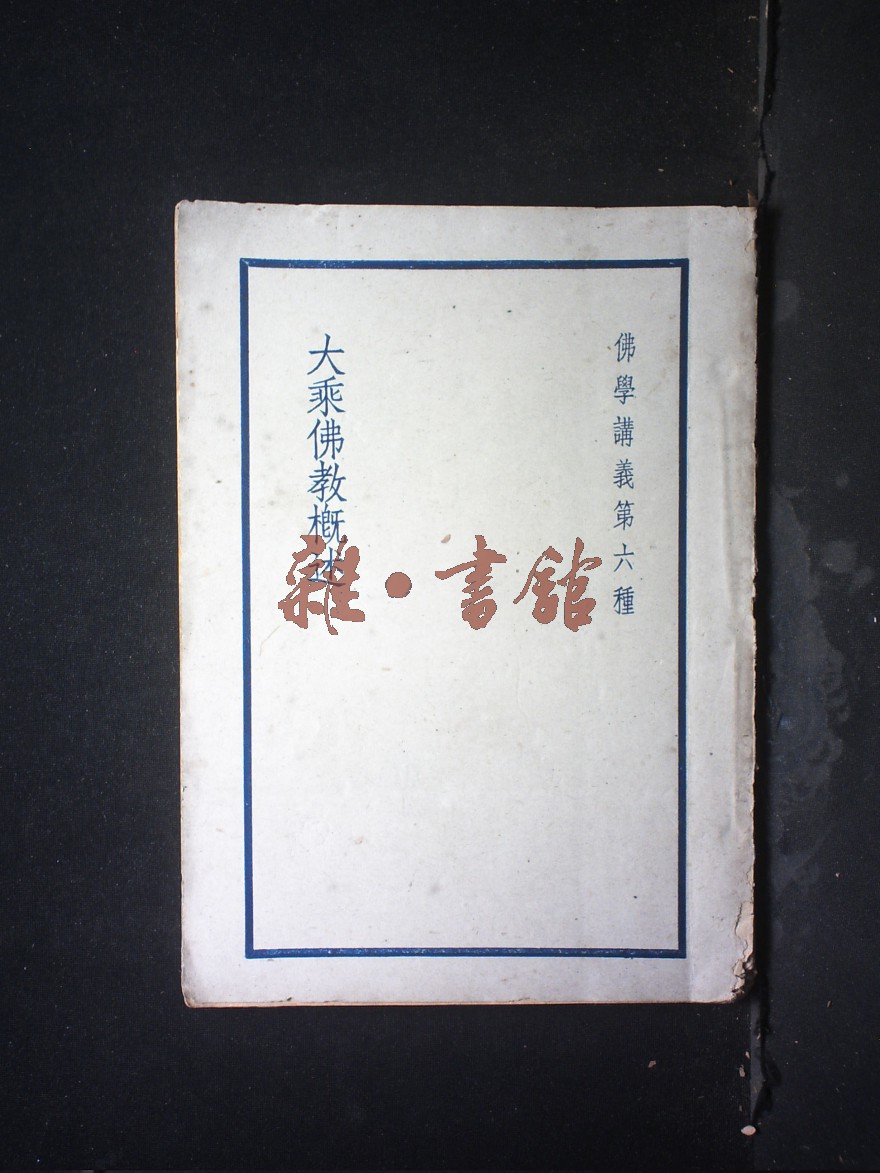 佛學講義第六種
大乘佛教概述
雜·書館